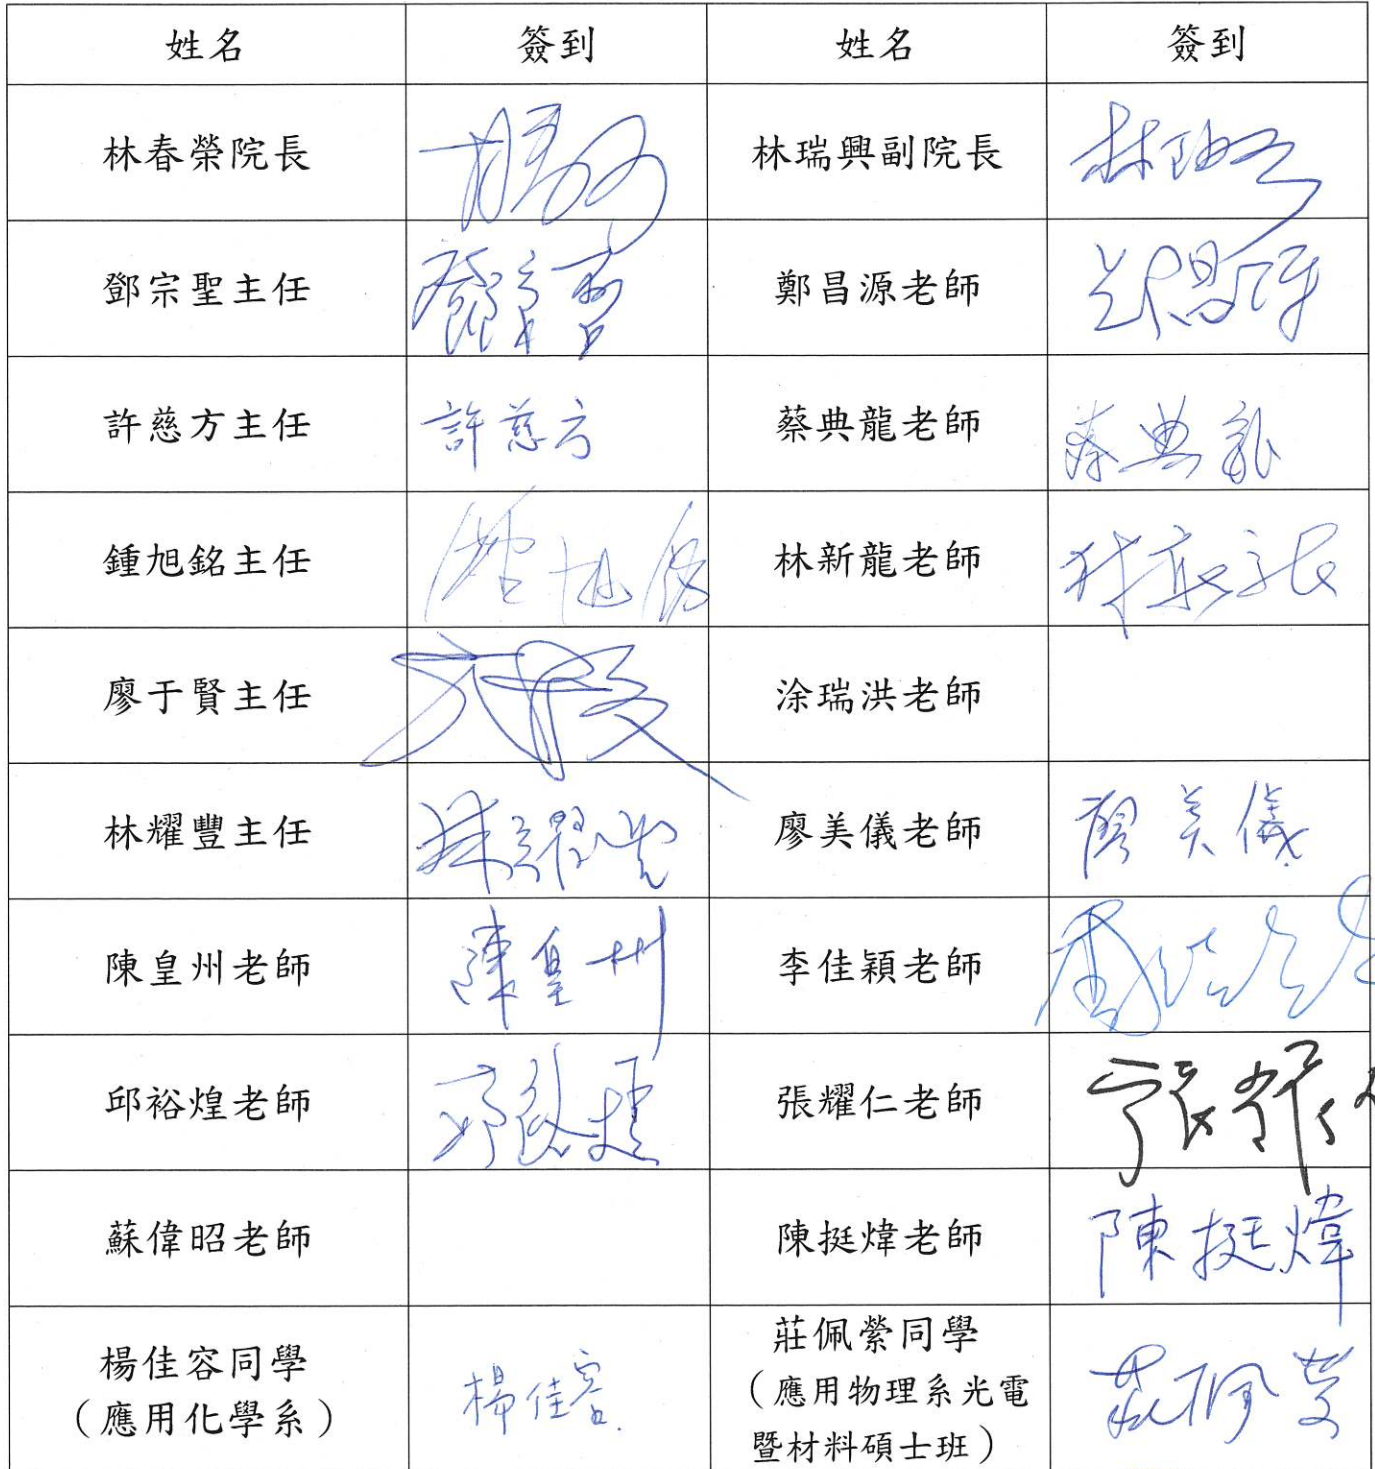 姓名 簽到 姓名 簽到
林春榮院長 林瑞興副院長
鄧宗聖主任 鄭昌源老師
許慈方主任 許慈方 蔡典龍老師 蔡典龍
鍾旭銘主任 鍾旭銘 林新龍老師
廖于賢主任 涂瑞洪老師
林耀豐主任 林耀豐 廖美儀老師 廖美儀
陳皇州老師 陳皇州 李佳穎老師
邱裕煌老師 邱裕煌 張耀仁老師
蘇偉昭老師 陳挺煒老師 陳挺煒
楊佳容同學
(應用化學系) 楊佳容
莊佩縈同學
(應用物理系光電
暨材料碩士班) 莊佩縈